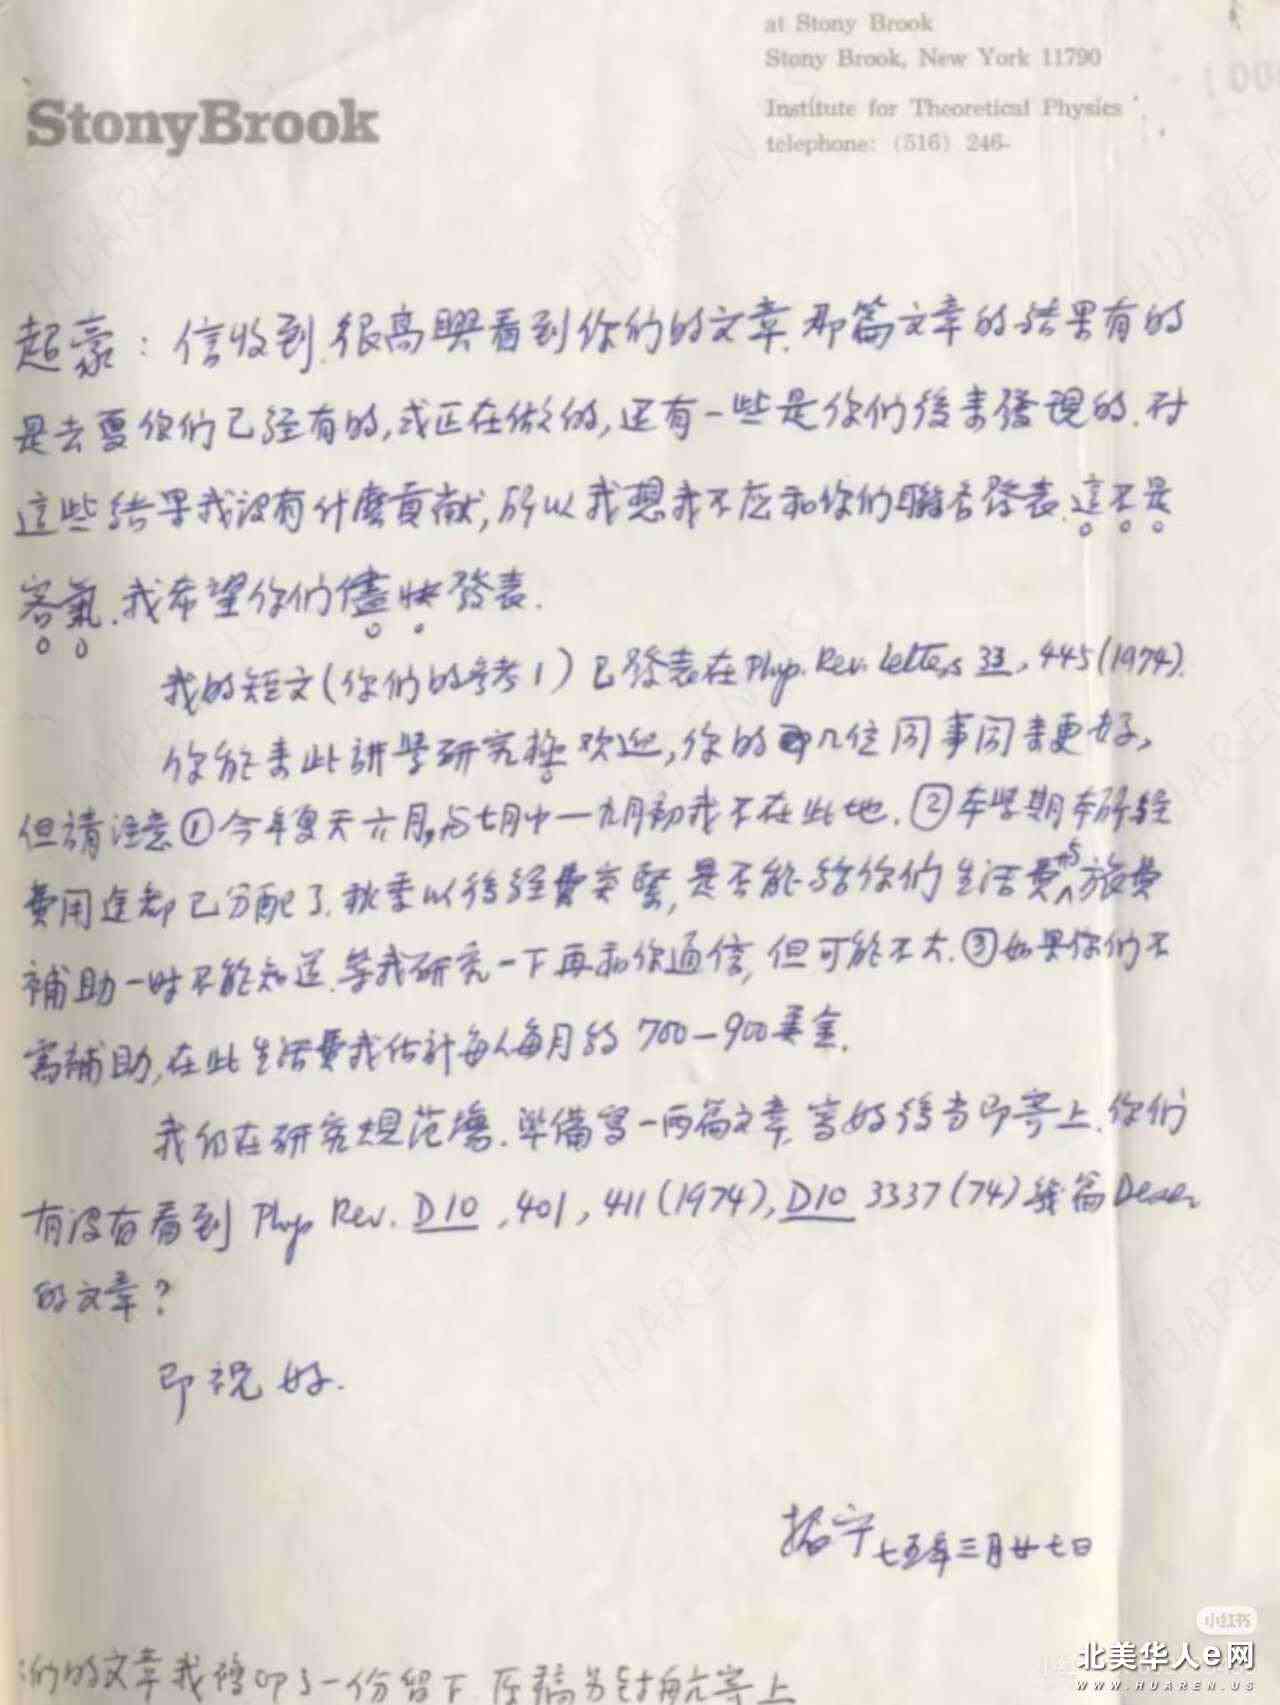 at Stony Brook
Stony Brook, New York 11790
StonyBrook
Institute for Theoretical Physics
telephone: (516) 246-
超豪：信收到.很高興看到你们的文章.那篇文章的结果有的
是去夏你们已经有的,或正在做的,还有一些是你们後来發現的.对
這些结果我没有什麼貢献,所以我想我不应和你们聯名發表.這不是
客氣.我希望你们儘快發表.
我的短文(你们的参考1)已發表在Phys. Rev. Letters 33, 445(1974).
你能来此讲学研究极欢迎,你的几位同事同来更好,
但請注意①今年夏天六月,与七月中一九月初我不在此地.②本学期本所经
費用途都已分配了.秋季以後经費突緊,是否能给你们生活費与旅費
補助一时不能知道.等我研究一下再和你通信,但可能不大.③如果你们不
需補助,在此生活費我估計每人每月约700-900美金.
我仍在研究規范場.準備寫一两篇文章.寫好後当即寄上.你们
有没有看到 Phys Rev. D10, 401, 411(1974), D10 3337(74)幾篇Deser
的文章?
即祝好.
振宁 七五年三月廿七日
们的文章我複印了一份留下.原稿另封航寄上
小红书
北美华人e网
WWW.HUAREN.US